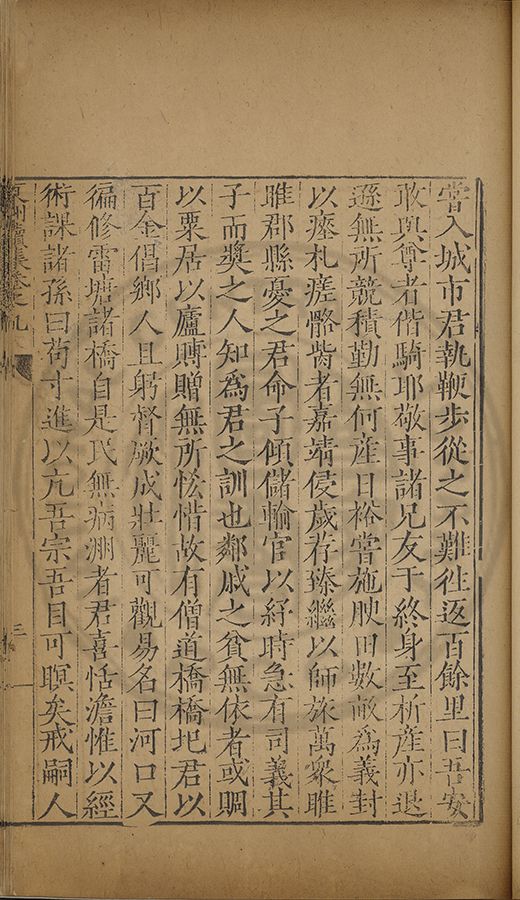 嘗入城市君執鞭步從之不難往返百餘里曰吾安
敢與尊者偕騎耶敬事諸兄友于終身至析產亦退
遜無所競積勤無何產日裕嘗施腴田數畝為義封
以瘞札瘥骼胔者嘉靖侵歲荐臻繼以師旅萬衆睢
睢郡縣憂之君命子傾儲輸官以紓時急有司義其
子而獎之人知為君之訓也鄰戚之貧無依者或賙
以粟居以廬賻贈無所恡惜故有僧道橋橋圯君以
百金倡鄉人且躬督厥成壯麗可觀易名曰河口又
徧修雷塘諸橋自是民無病淵者君喜恬澹惟以經
術課諸孫曰茍寸進以亢吾宗吾目可瞑矣戒嗣人
續集卷之九
三